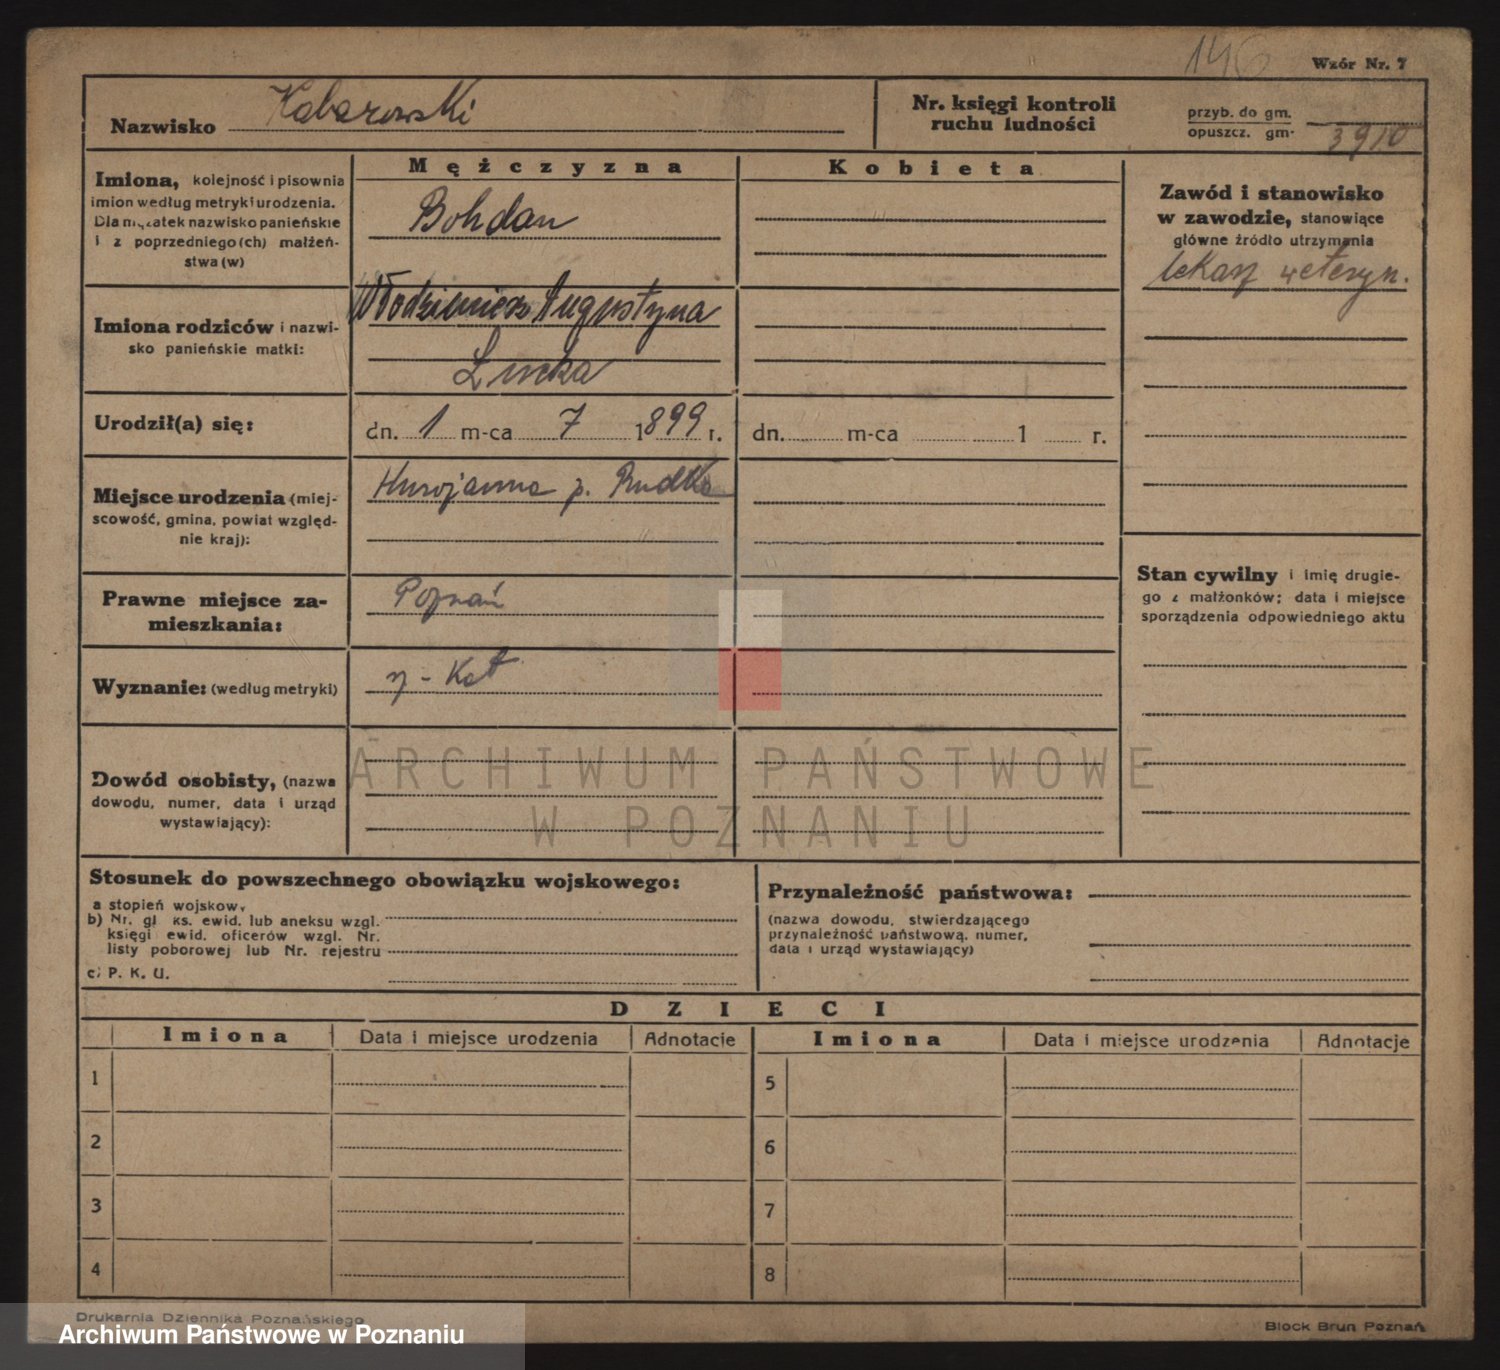 146
Wzór Nr. 7
Nazwisko Kabarowski
Nr. księgi kontroli
ruchu ludności
przyb. do gm.
opuszcz. gm. 3910
Imiona, kolejność i pisownia
imion według metryki urodzenia.
Dla mężatek nazwisko panieńskie
i z poprzedniego (ch) małżeń-
stwa (w)
Mężczyzna
Kobieta
Bohdan
Zawód i stanowisko
w zawodzie, stanowiące
główne źródło utrzymania
lekarz weteryn.
Imiona rodziców i nazwi-
sko panieńskie matki:
Włodzimierz Augustyna
Urodził(a) się:
dn. 1 m-ca 7 1899 r.
dn. m-ca 1 r.
Miejsce urodzenia (miej-
scowość, gmina, powiat względ-
nie kraj):
p. Rudka
Prawne miejsce za-
mieszkania:
Poznań
Stan cywilny i imię drugie-
go z małżonków; data i miejsce
sporządzenia odpowiedniego aktu
Wyznanie: (według metryki)
r - Kat
Dowód osobisty, (nazwa
dowodu, numer, data i urząd
wystawiający):
ARCHIWUM PAŃSTWOWE
W POZNANIU
Stosunek do powszechnego obowiązku wojskowego:
a stopień wojskow,
b) Nr. gł ks. ewid. lub aneksu wzgl.
księgi ewid. oficerów wzgl. Nr.
listy poborowej lub Nr. rejestru
c) P. K. U.
Przynależność państwowa:
(nazwa dowodu, stwierdzającego
przynależność państwową, numer,
data i urząd wystawiający)
DZIECI
Imiona Data i miejsce urodzenia Adnotacje Imiona Data i miejsce urodzenia Adnotacje
1 5
2 6
3 7
4 8
Drukarnia Dziennika Poznańskiego
Block Brun Poznań
Archiwum Państwowe w Poznaniu